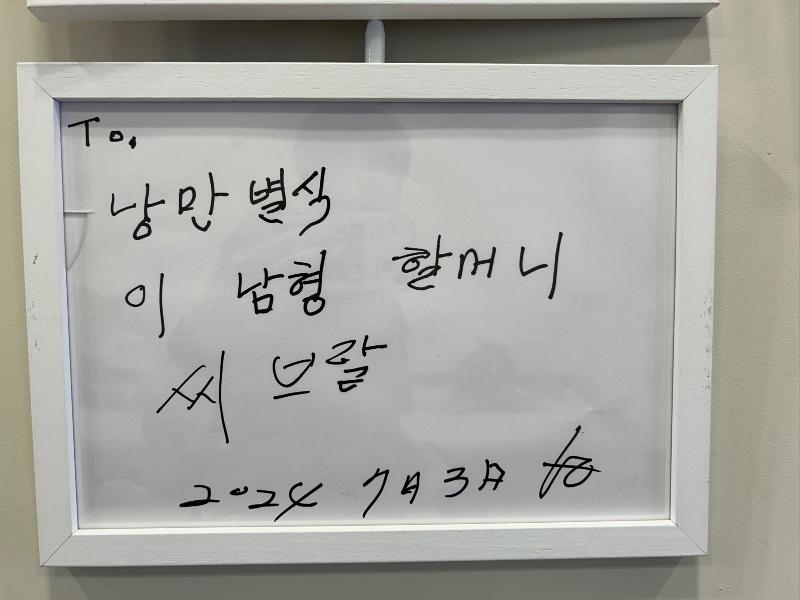 To.
낭만 별식
이 남형 할머니
씨 브랄
2024 7月 3日